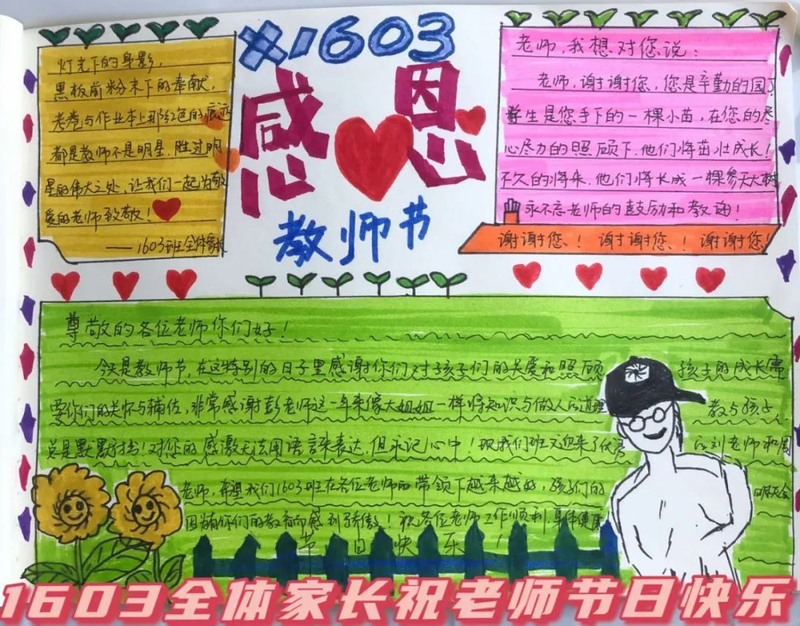 X1603
感恩
教师节
灯光下的身影,
黑板前粉末下的奉献,
老卷与作业本上那红色的痕迹
都是教师不是明星,胜过明
星的伟大之处,让我们一起为敬
爱的老师致敬!
——1603班全体家长
老师,我想对您说:
老师,谢谢您,您是辛勤的园丁
学生是您手下的一棵小苗,在您的尽
心尽力的照顾下,他们将茁壮成长!
不久的将来,他们将长成一棵参天大树
永不忘老师的鼓励和教诲!
谢谢您!谢谢您!谢谢您!
尊敬的各位老师你们好!
今天是教师节,在这特别的日子里感谢你们对孩子们的关爱和照顾 孩子的成长需
要你们的关怀与辅佐,非常感谢彭老师这一年来像大姐姐一样将知识与做人的道理 教与孩子,
总是默默付出!对您的感激无法用语言来表达,但永记心中!现我们班又迎来了优秀 的刘老师和周
老师,希望我们1603班在各位老师的带领下越来越好,孩子们的 明天会
因为有你们的教育而感到骄傲!祝各位老师工作顺利,身体健康
节日快乐!
1603全体家长祝老师节日快乐